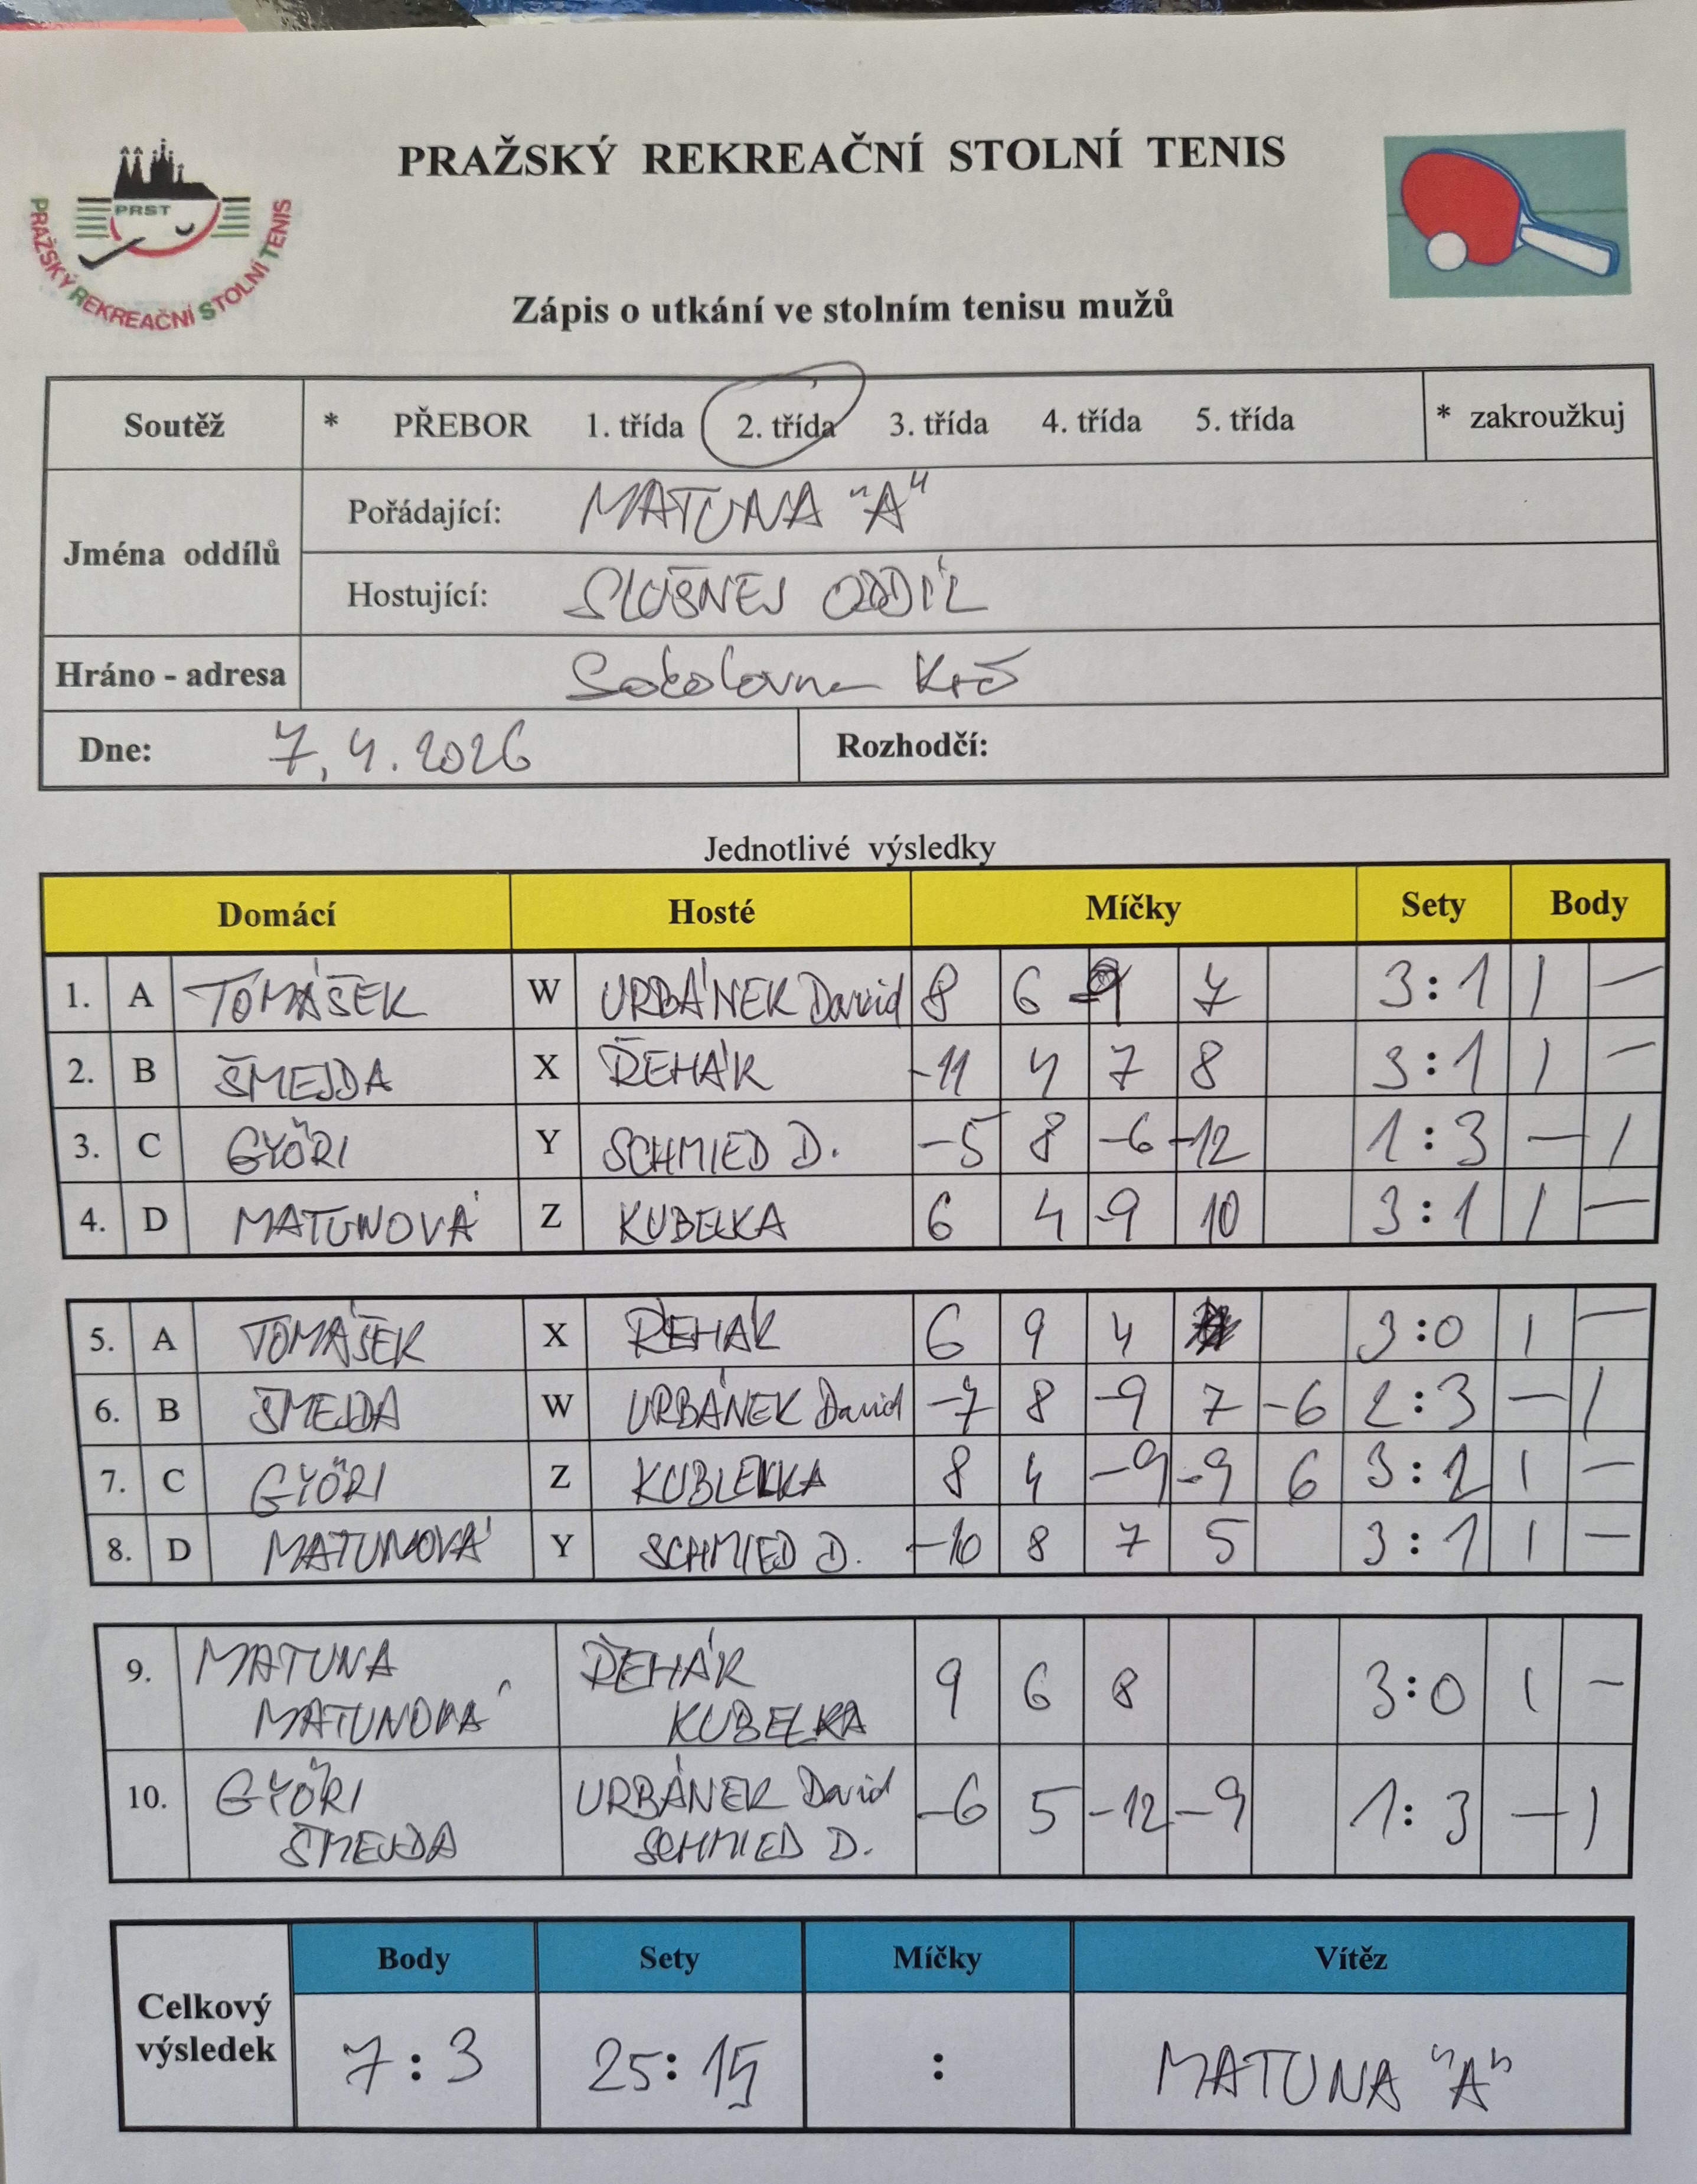 PRAŽSKÝ REKREAČNÍ STOLNÍ TENIS
PRST
PRAŽSKÝ REKREAČNÍ STOLNÍ TENIS
Zápis o utkání ve stolním tenisu mužů
Soutěž * PŘEBOR 1. třída 2. třída 3. třída 4. třída 5. třída * zakroužkuj
Jména oddílů
Pořádající: MATUNA "A"
Hostující: SLUŠNEJ ODDÍL
Hráno - adresa Sokolovna Krč
Dne: 7.4.2026 Rozhodčí:
Jednotlivé výsledky
Domácí Hosté Míčky Sety Body
1. A TOMÁŠEK W URBÁNEK David 8 6 -9 7 3:1 1 —
2. B ŠMEJDA X ŘEHÁK -11 4 7 8 3:1 1 —
3. C GYŐRI Y SCHMIED D. -5 8 -6 -12 1:3 — 1
4. D MATUNOVÁ Z KUBELKA 6 4 -9 10 3:1 1 —
5. A TOMÁŠEK X ŘEHÁK 6 9 4 3:0 1 —
6. B ŠMEJDA W URBÁNEK David -7 8 -9 7 -6 2:3 — 1
7. C GYŐRI Z 8 4 -9 -9 6 3:2 1 —
8. D MATUNOVÁ Y SCHMIED D. -10 8 7 5 3:1 1 —
9. MATUNA ŘEHÁK 9 6 8 3:0 1 —
MATUNOVÁ KUBELKA
10. GYŐRI URBÁNEK David -6 5 -12 -9 1:3 — 1
ŠMEJDA SCHMIED D.
Body Sety Míčky Vítěz
Celkový výsledek 7:3 25:15 : MATUNA "A"